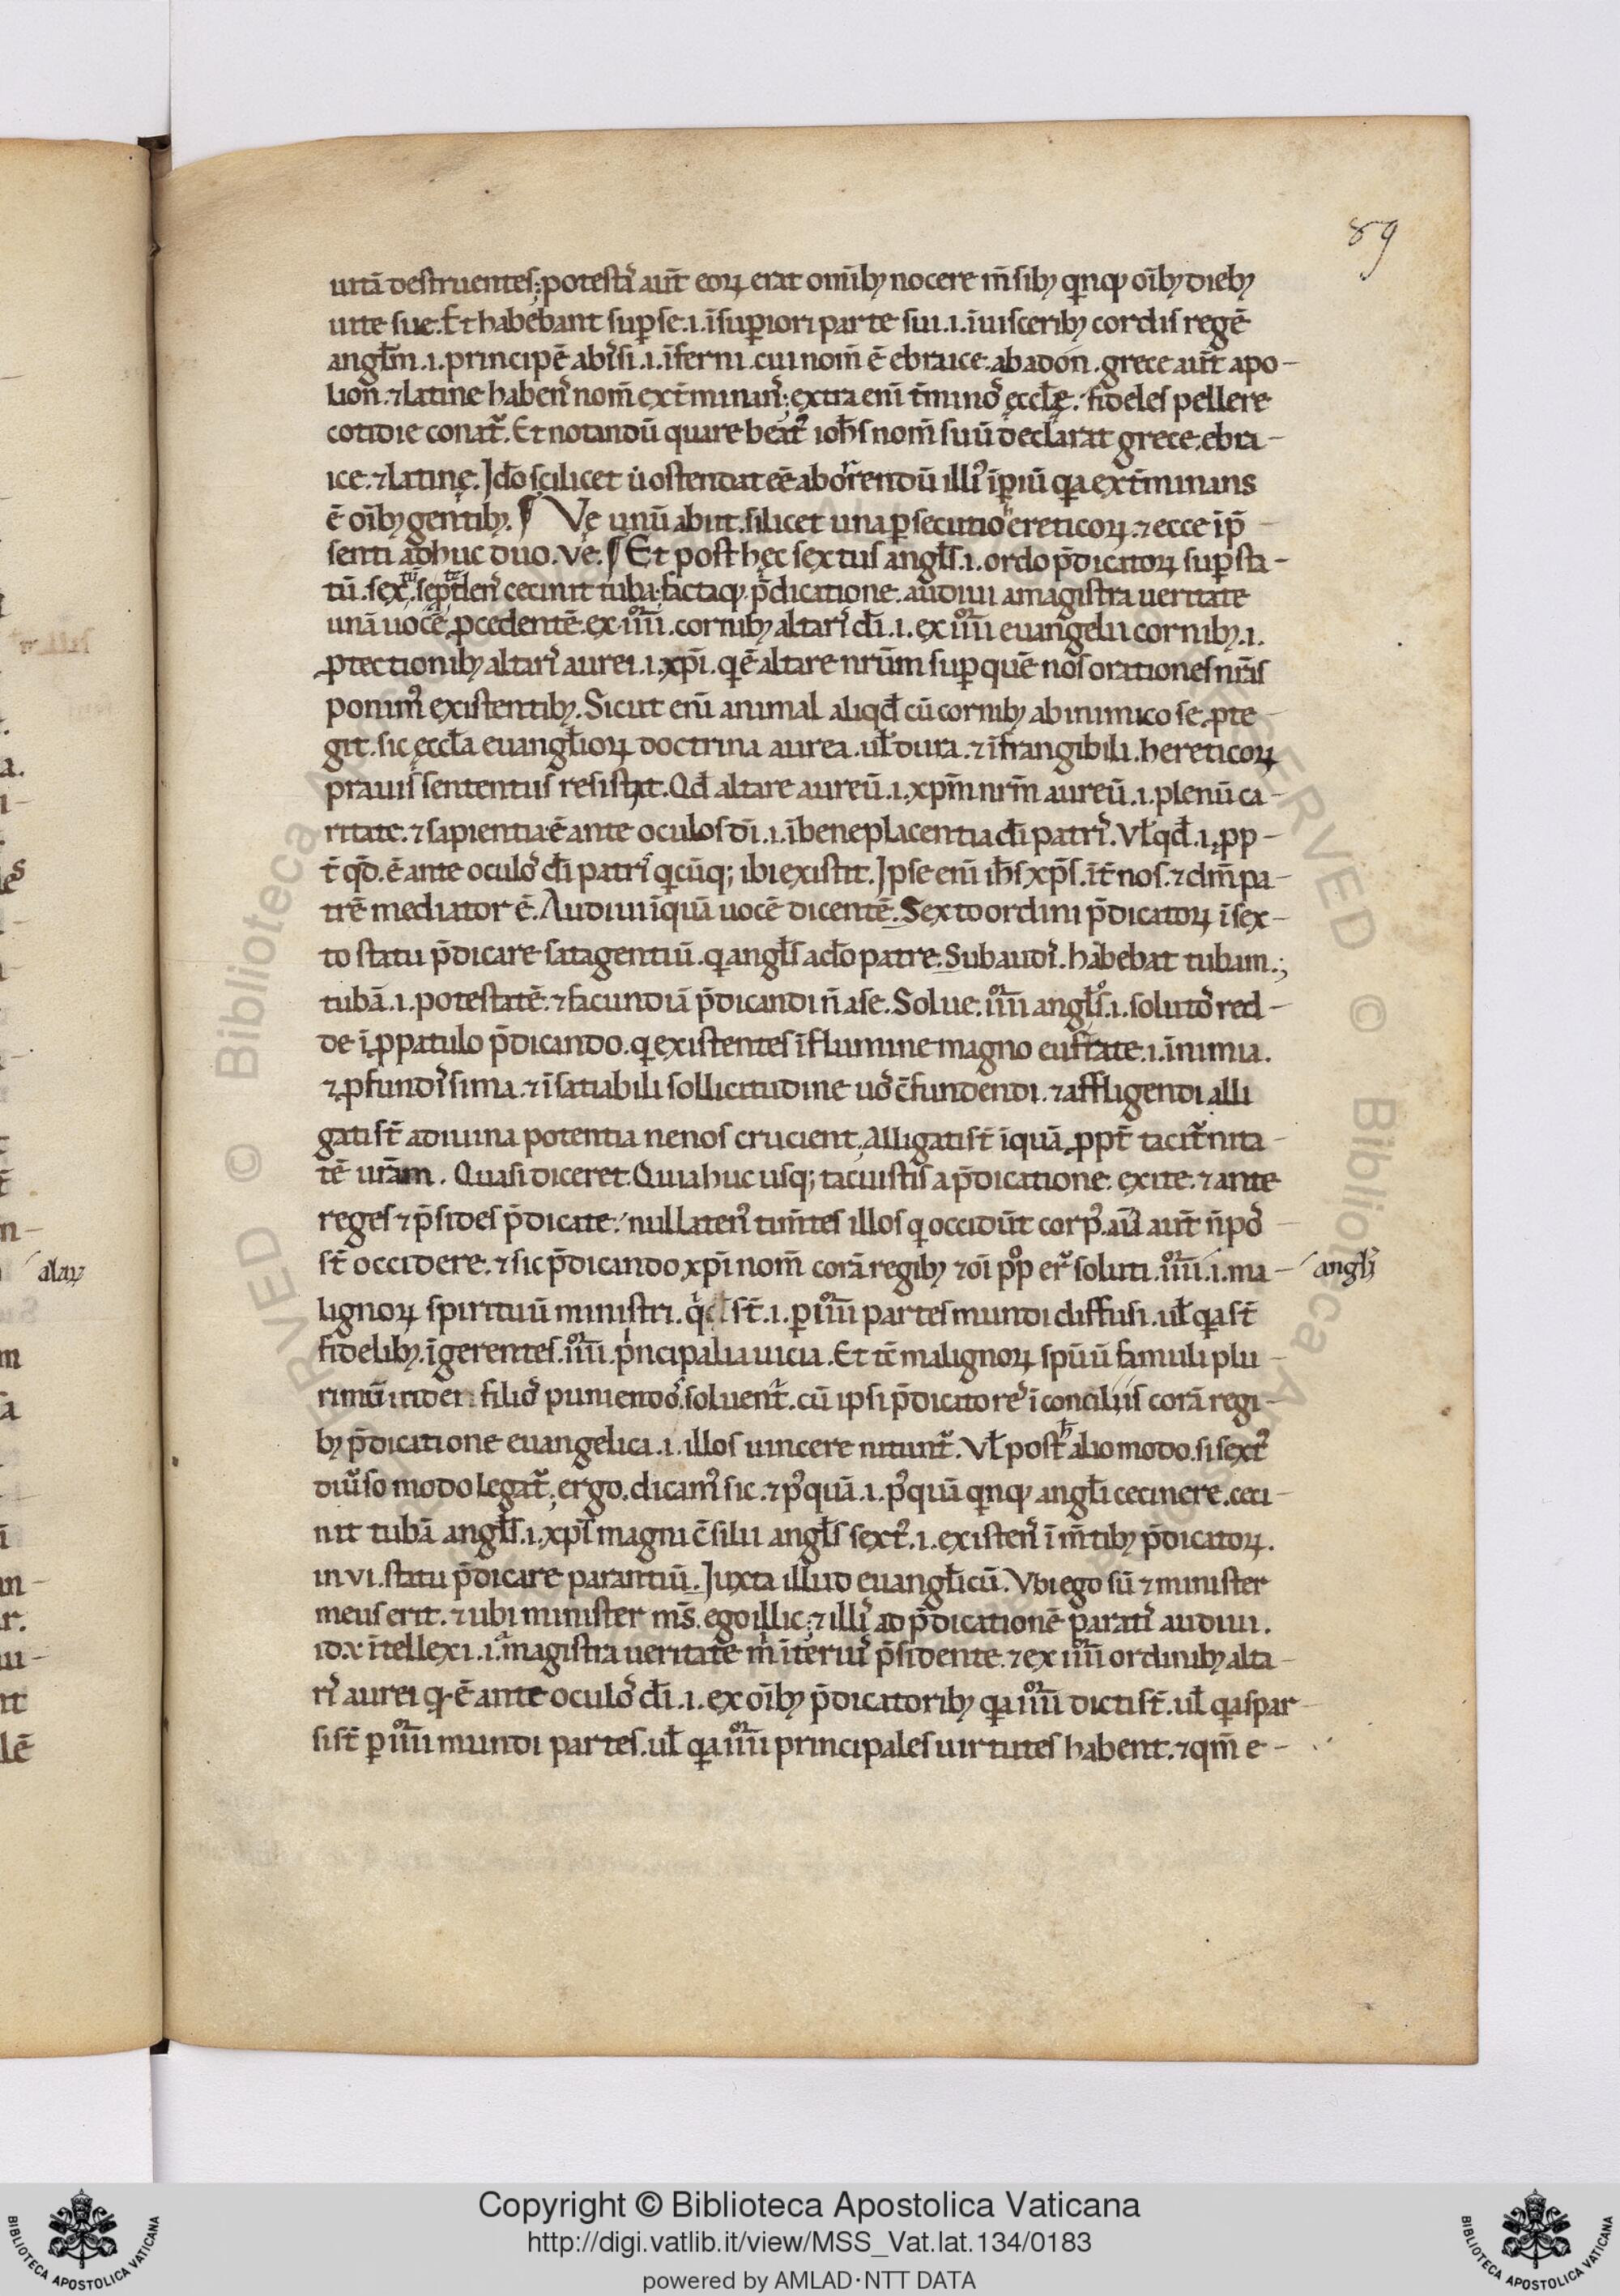 89
uitā destruentes; potestas aūt eoꝝ erat omībꝫ nocere m̄sibꝫ qinqꝫ oībꝫ diebꝫ
uite sue. Et habebant sup se .i. ī supiori parte sui .i. ī uisceribꝫ cordis regē
angl̄m .i. principē abissi .i. īferni . cui nom̄ ē ebraice . abadon . grece aūt apo-
lion . ⁊ latine habens nom̄ ext̄minans; extra eni t̄minos ęccl̄ę . fideles pellere
cotidie conat᷑ . Et notandū quare beat᷒ ioh̄s nom̄ suū declarat grece . ebra-
ice . ⁊ latinę . Ido scilicet ut ostendat eē aborrendū illi᷒ īpiū qa ext̄minans
ē oībꝫ gentibꝫ . ¶ Vę unū abiit . silicet una psecutio ereticoꝝ . ⁊ ecce īp̄
senti adhuc duo . ve . ¶ Et post hęc sextus angl̄s .i. ordo p̄dicatoꝝ sup sta-
cecinit tuba; factaqꝫ p̄dicatione . audiui a magistra ueritate
unā uocē ꝓcedentē . ex .iiii. cornibꝫ altaris di .i. ex iiii euangelii cornibꝫ .i.
ꝓtectionibꝫ altaris aurei .i. xp̄i . q ē altare nr̄um sup quē nos orationes nr̄as
ponim᷒ existentibꝫ . Sicut eni animal aliqd cū cornibꝫ ab inimico se ꝓte
git . sic ęccl̄a euangl̄ioꝝ doctrina aurea . ul̄ dura . ⁊ īfrangibili . hereticoꝝ
prauis sententiis resistit . Qd altare aureū .i. xp̄m nr̄m aureū .i. plenū ca-
ritate . ⁊ sapientia ē ante oculos di .i. ī beneplacentia di patris . Vl̄ qd .i. ꝓp-
t̄ qd . ē ante oculos di patris qicūqꝫ ibi existit . Ipse eni ih̄s xp̄s . īt̄ nos . ⁊ dm̄ pa-
trē mediator ē . Audiui īquā uocē dicentē . Sexto ordini p̄dicatoꝝ ī sex-
to statu p̄dicare satagentiū . q angl̄s a do patre . Subaudis . habebat tubam .;
tubā .i. potestatē . ⁊ facundiā p̄dicandi n̄ a se . Solue . iiii anglos .i. solutos red-
de ī ꝓpatulo p̄dicando . q existentes ī flumine magno eufrate .i. ī nimia .
⁊ ꝓfundissima . ⁊ īsatiabili sollicitudine uos c̄fundendi . ⁊ affligendi alli
gati st̄ a diuina potentia ne nos crucient . Alligati st̄ īquā ꝓpt̄ tacit̄nita-
tē urām . Quasi diceret . Quia huc usqꝫ tacuistis a p̄dicatione . exite . ⁊ ante
reges ⁊ p̄sides p̄dicate . nullaten᷒ tim̄tes illos q occidūt corp᷒
st̄ occidere . ⁊ sic p̄dicando xp̄i nom̄ corā regibꝫ ⁊ oī pp̄o er᷑ soluti .iiii. .i. ma-
angl̄i
lignoꝝ spirituū ministri . st̄ .i. p iiii partes mundi diffusi . ul̄ qa st̄
fidelibꝫ . īgerentes . iiii . p̄ncipalia uicia . Et tē malignoꝝ sp̄uū famuli plu-
rimū filios puniendos soluent᷑ . cū ipsi p̄dicatores ī conciliis corā regi-
bꝫ p̄dicatione euangelica .i. illos uincere nitunt᷑ . Vl̄ post alio modo . si sext᷒
diuso modo legat᷑; ergo . dicam᷒ sic . ⁊ p᷒quā .i. p᷒quā qinqꝫ angl̄i cecinere . ceci-
nit tubā angl̄s .i. xp̄s magni c̄silii angl̄s sext᷒ .i. existens ī m̄tibꝫ p̄dicatoꝝ .
in vi . statu p̄dicare parantiū . Iuxta illud euangl̄icū . Vbi ego sū ⁊ minister
meus erit . ⁊ ubi minister m̄s . ego illic; ⁊ illis ad p̄dicationē paratis audiui .
īтellexi .i. magistra ueritate m̄ īterius p̄sidente . ⁊ ex iiii ordinibꝫ alta-
ris aurei q ē ante oculos di .i. ex oībꝫ p̄dicatoribꝫ qa iiii dicti st̄ . ul̄ qa spar
si st̄ p iiii mundi partes . ul̄ qa iiii principales uirtutes habent . ⁊ qm̄ e-
alaꝝ
Copyright © Biblioteca Apostolica Vaticana
http://digi.vatlib.it/view/MSS_Vat.lat.134/0183
powered by AMLAD·NTT DATA